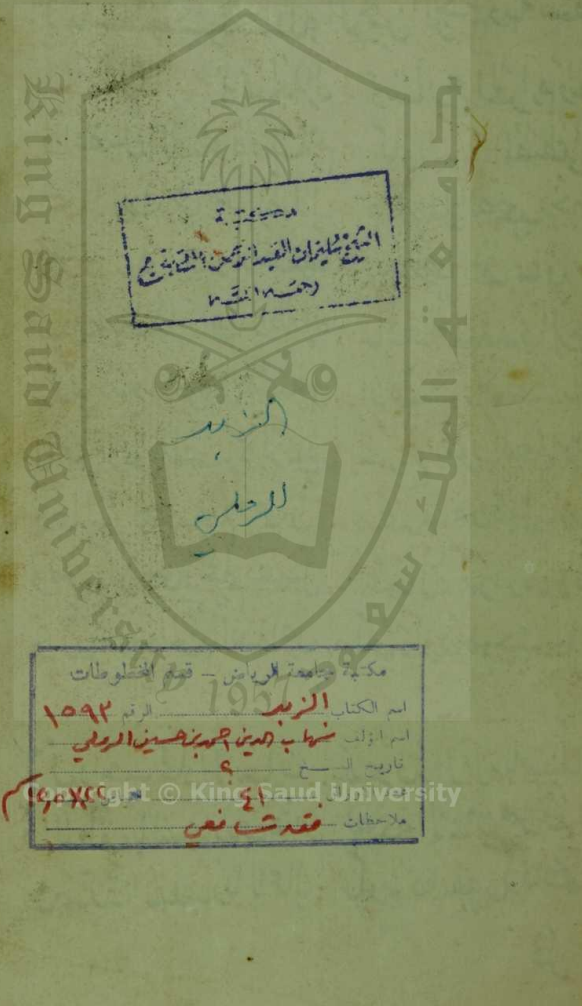 King Saud University
جامعة الملك سعود
1957
مكتبة
الشيخ سليمان العبدالرحمن
رحمه الله
الزبد
للرملي
مكتبة جامعة الرياض - قسم المخطوطات
اسم الكتاب الزبد الرقم ١٥٩٣
اسم المؤلف شهاب الدين احمد بن حسين الرملي
تاريخ النسخ ؟
عدد الاوراق ٤١
ملاحظات فقه شافعي
Copyright © King Saud University